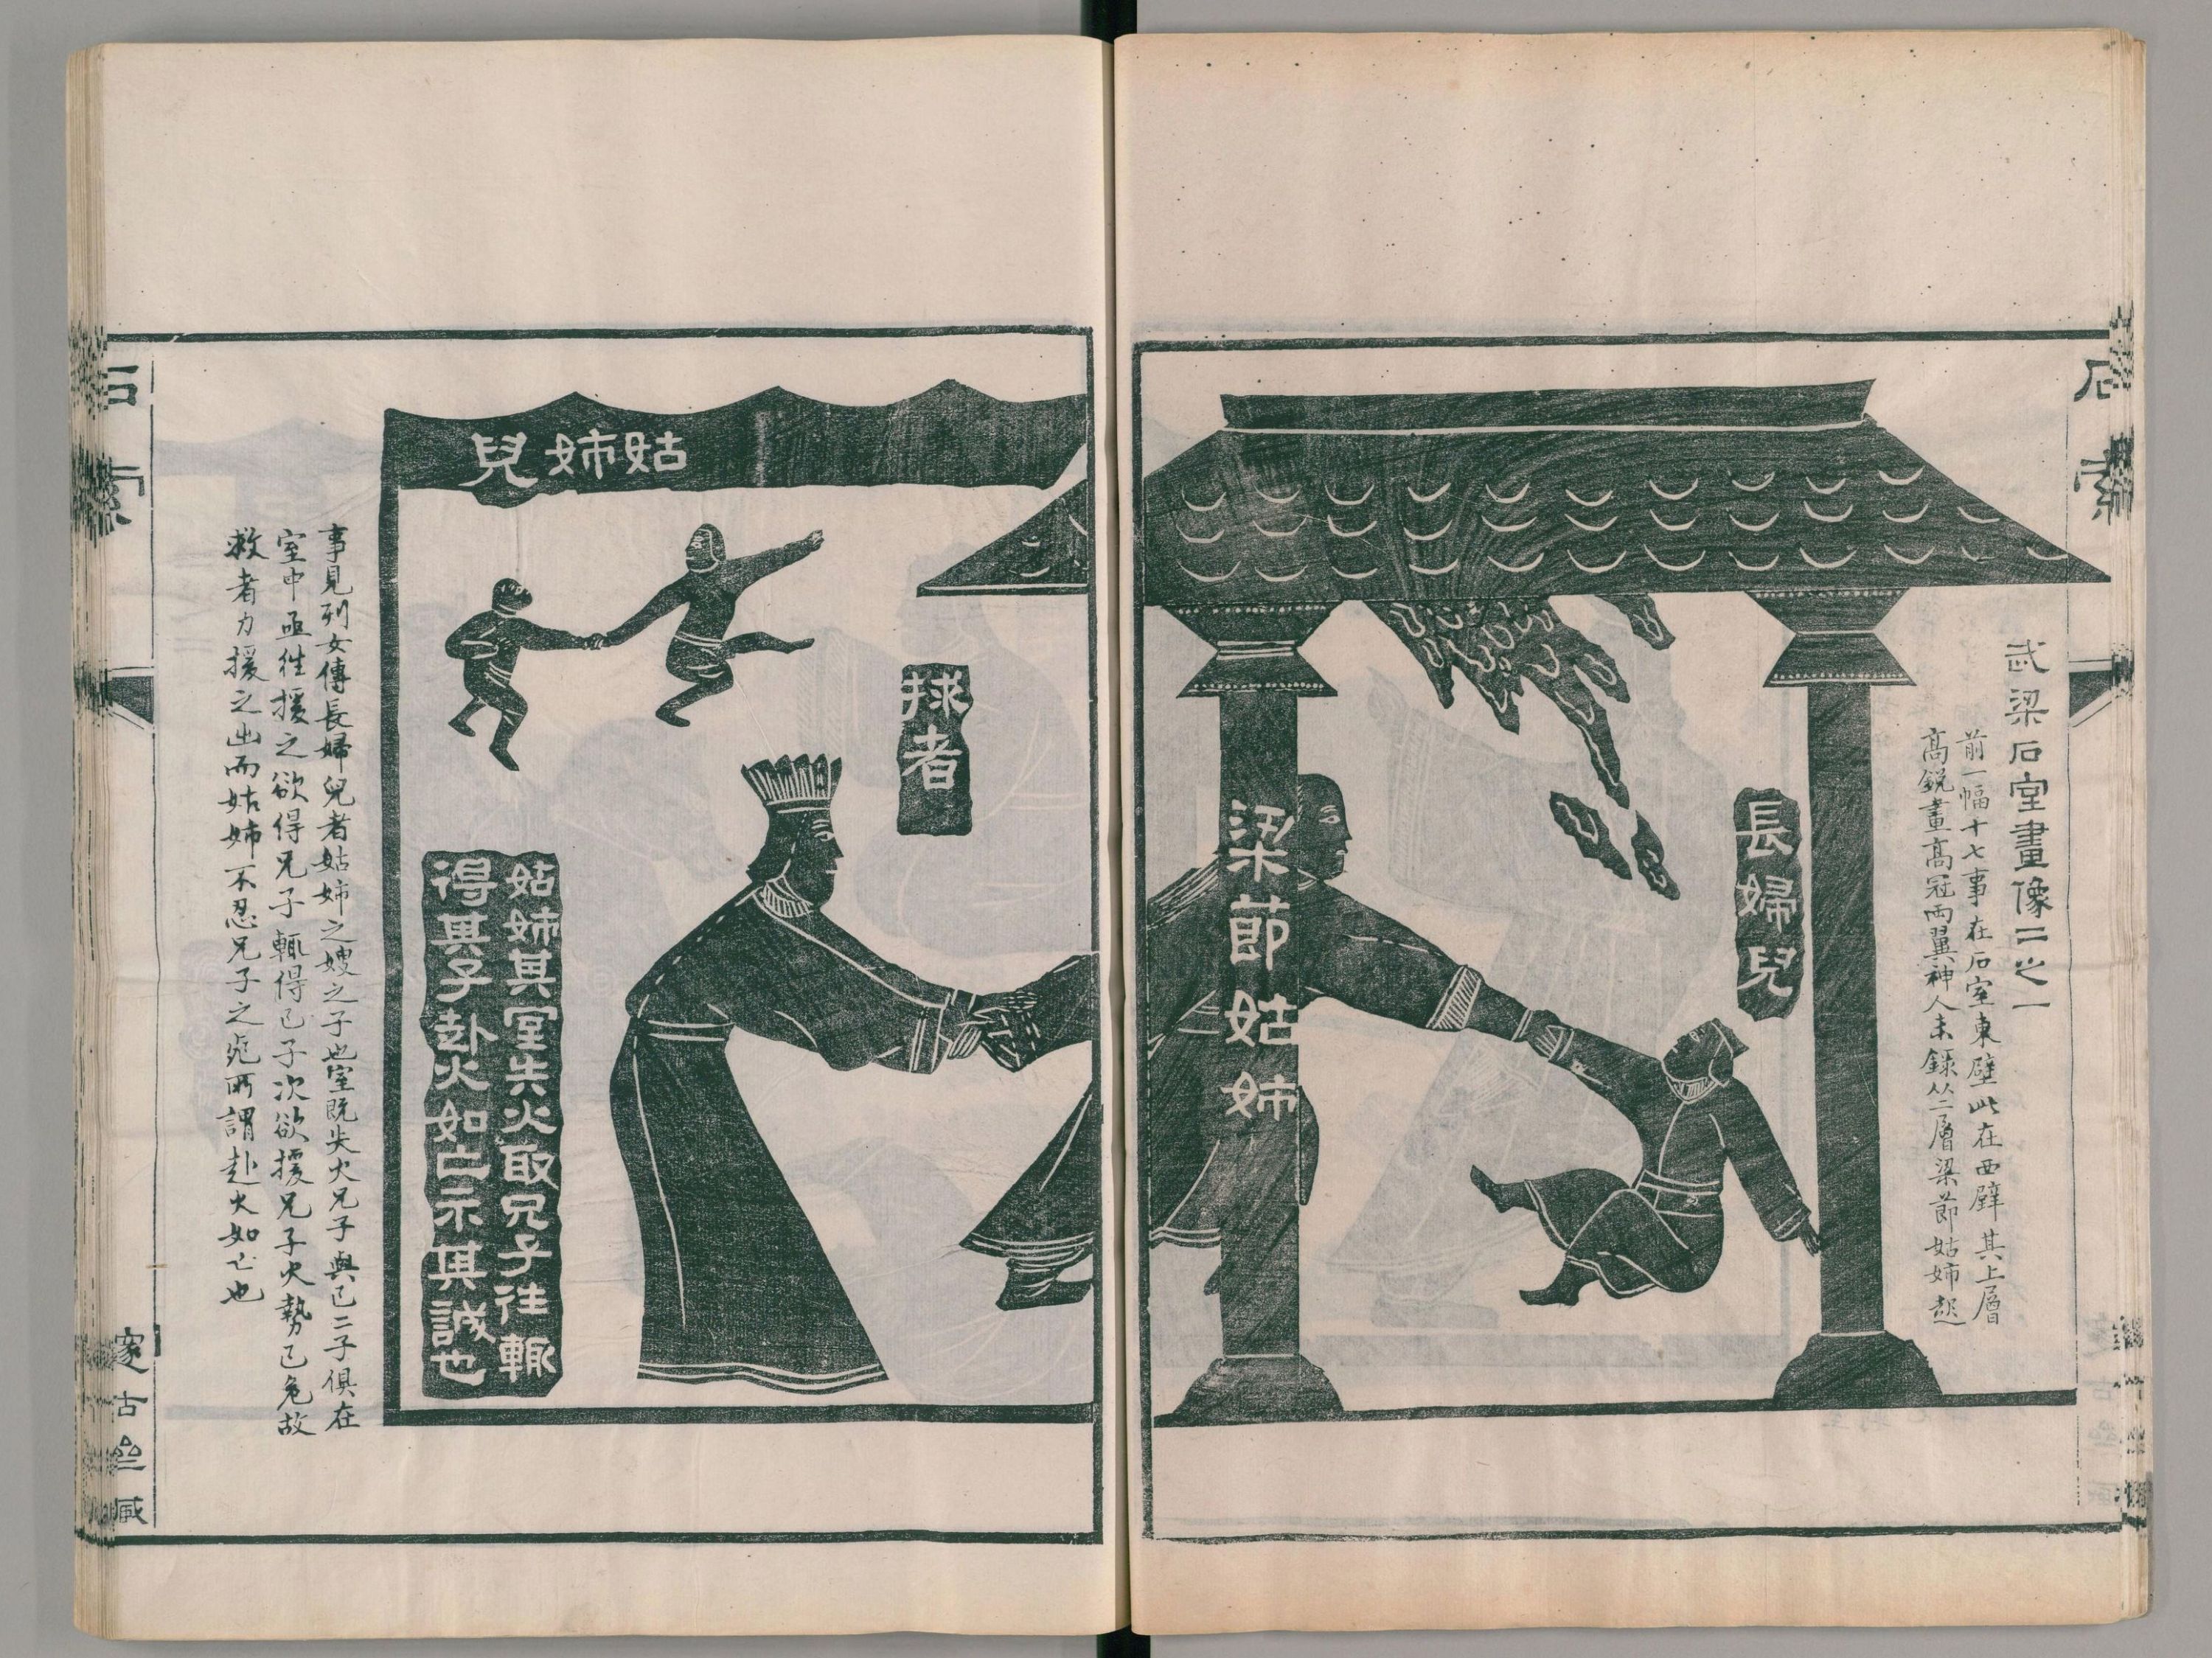 石索
武梁石室畫像二之一
前一幅十七事在石室東壁此在西壁其上層
高銳畫高冠兩翼神人未錄㡭二層梁節姑姊起
長婦兒
梁節姑姊
捄者
姑姉兒
姑姉其室失火取兄子往輙
得其子赴火如亡示其誠也
事見列女傳長婦兒者姑姉之嫂之子也室既失火兄子與己二子俱在
室中亟往援之欲得兄子輒得己子次欲援兄子火勢已危故
救者力援之出而姑姉不忍兄子之死所謂赴火如亡也
石索